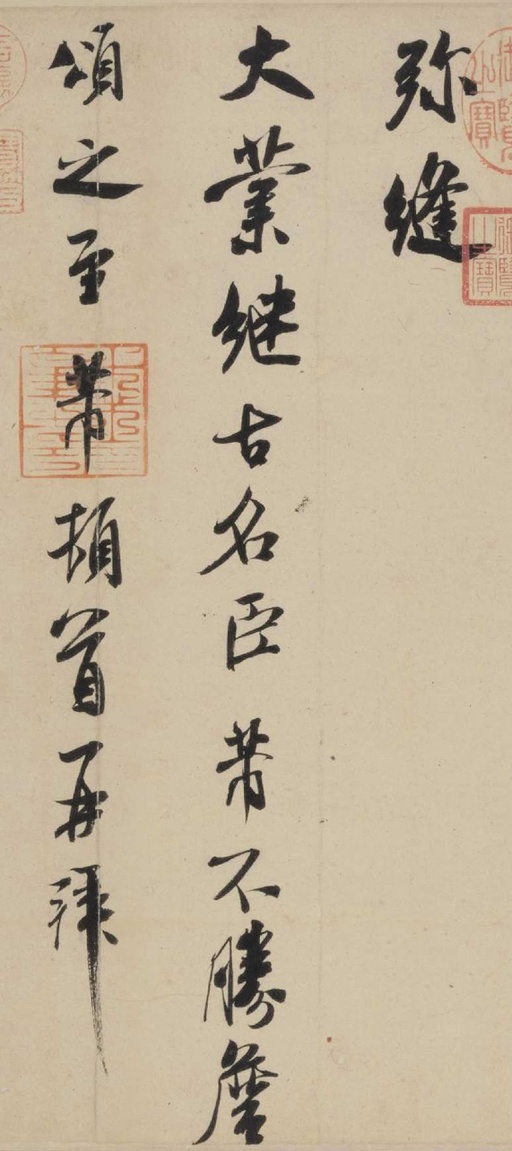 弥縫
大業継古名臣芾不勝詹
頌之至芾頓首再拜